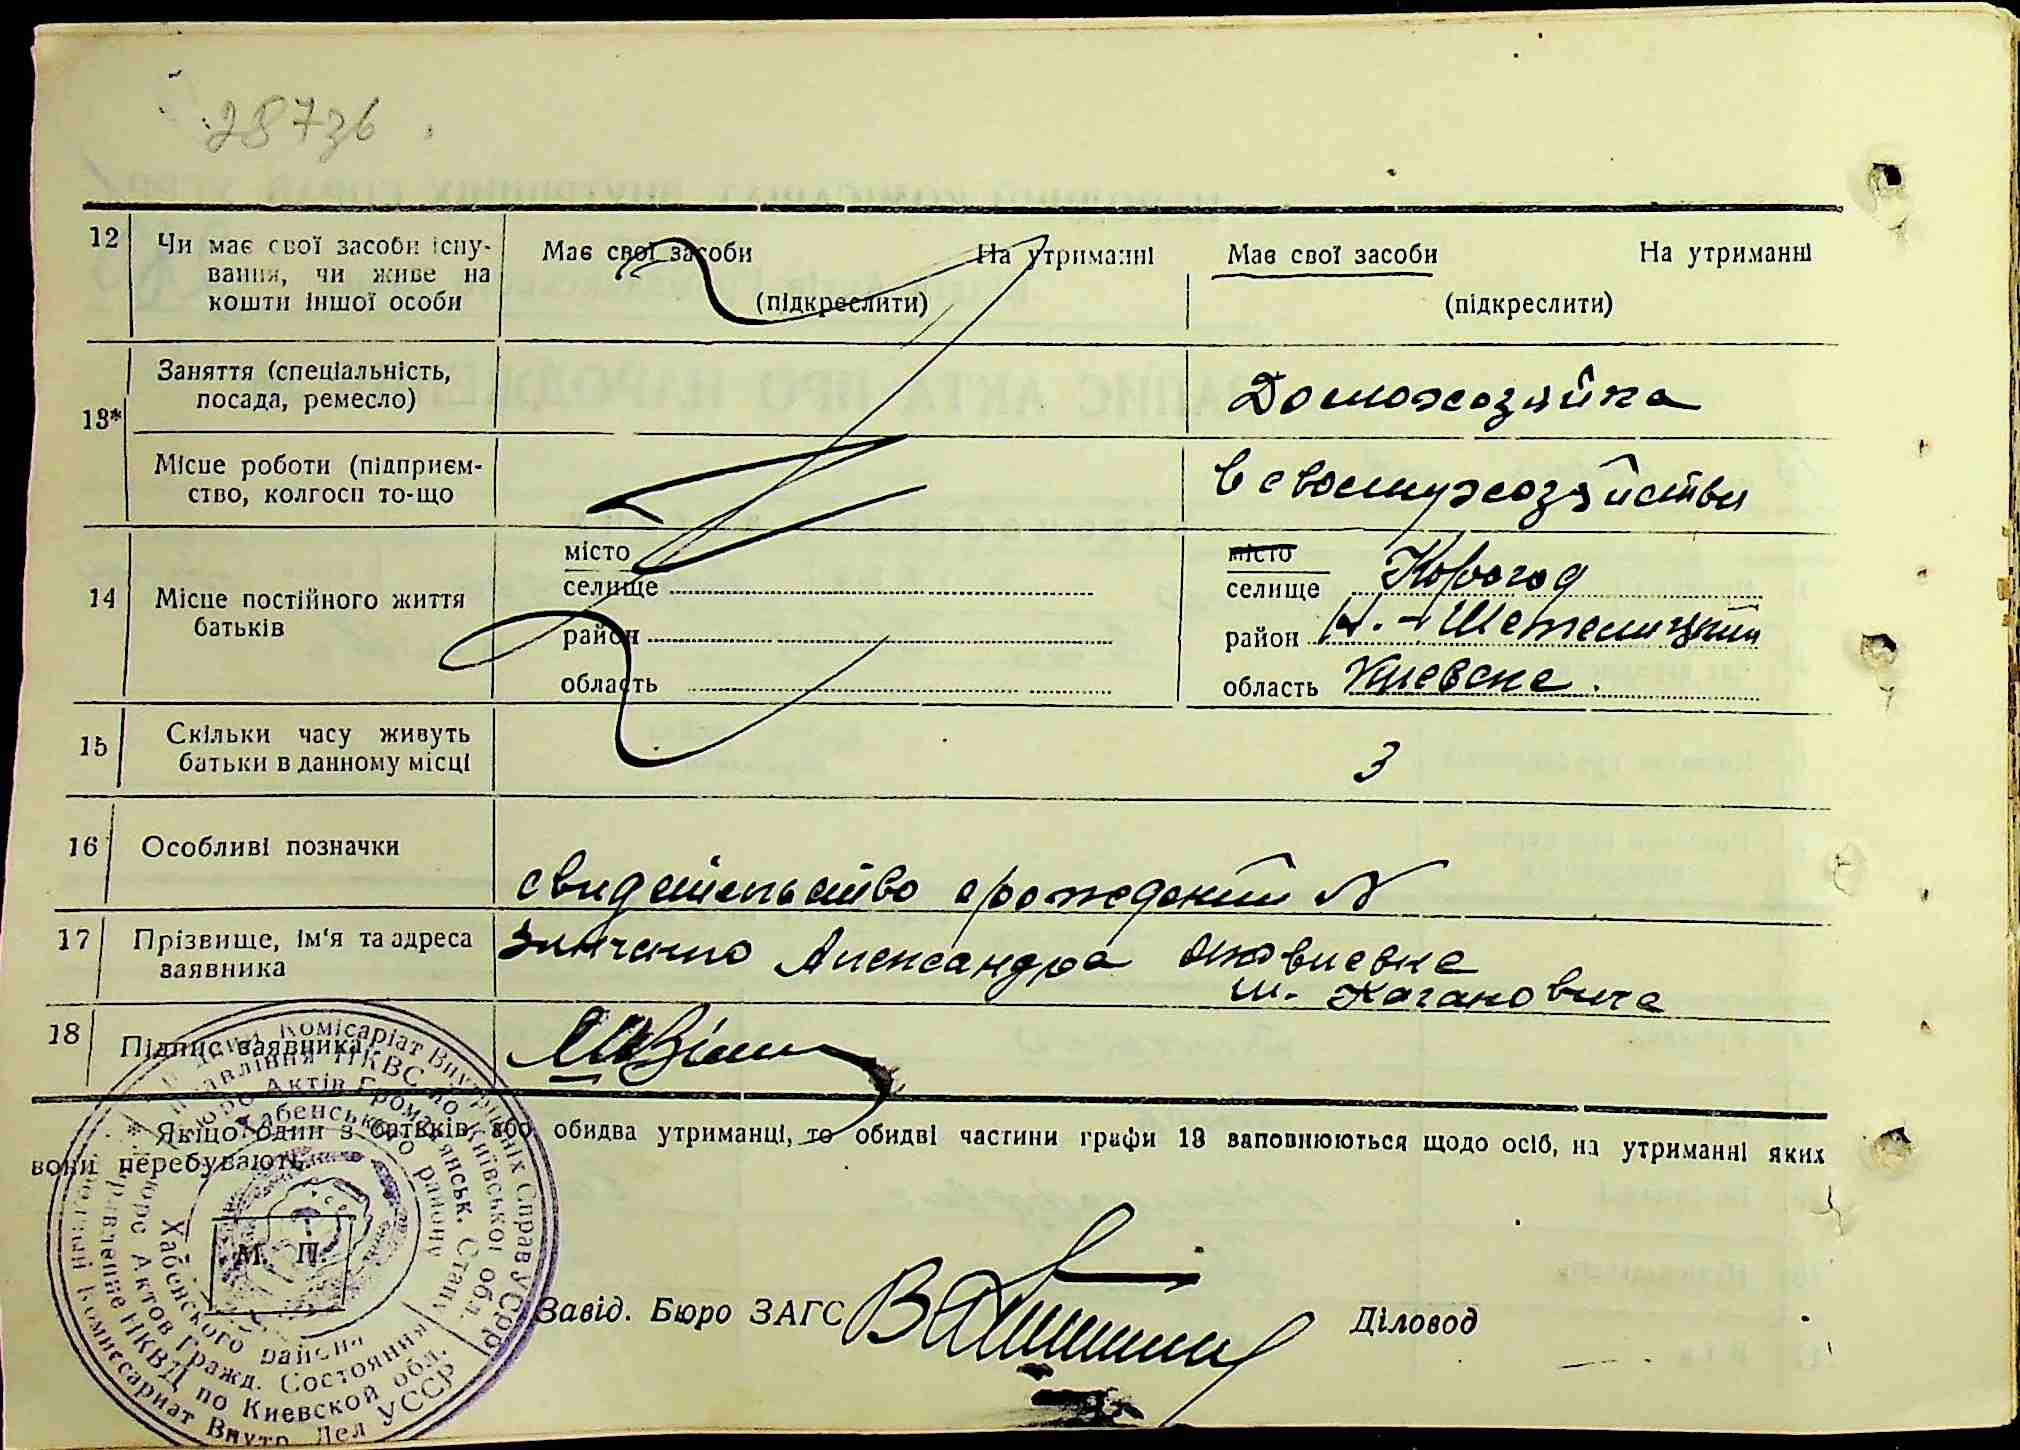 28736
12 Чи має свої засоби існу- Має свої засоби На утриманні Має свої засоби На утриманні
вання, чи живе на
кошти іншої особи (підкреслити) (підкреслити)
13* Заняття (спеціальність,
посада, ремесло) Домохозяйка
Місце роботи (підприєм-
ство, колгосп то-що в своему хозяйстве
14 Місце постійного життя
батьків
місто місто
селище селище Корогод
район район Н.-Шепелицкий
область область Киевске.
15 Скільки часу живуть
батьки в данному місці 3
16 Особливі позначки
свидетельство о рождении N
17 Прізвище, ім'я та адреса
заявника
Зинченко Александра
м. Кагановича
18 Підпис заявника
Якщо один з батьків або обидва утриманці, то обидві частини графи 13 заповнюються щодо осіб, на утриманні яких
вони перебувають.
М. П.
Завід. Бюро ЗАГС Діловод
Комісаріат Внутрішніх Справ УСРР
Управління НКВС по Київської обл.
Бюро Актів Громадянськ. Стану
Хабенського району
Хабенского района
Бюро Актов Гражд. Состояния
Управление НКВД по Киевской обл.
Комиссариат Внутр. Дел УССР